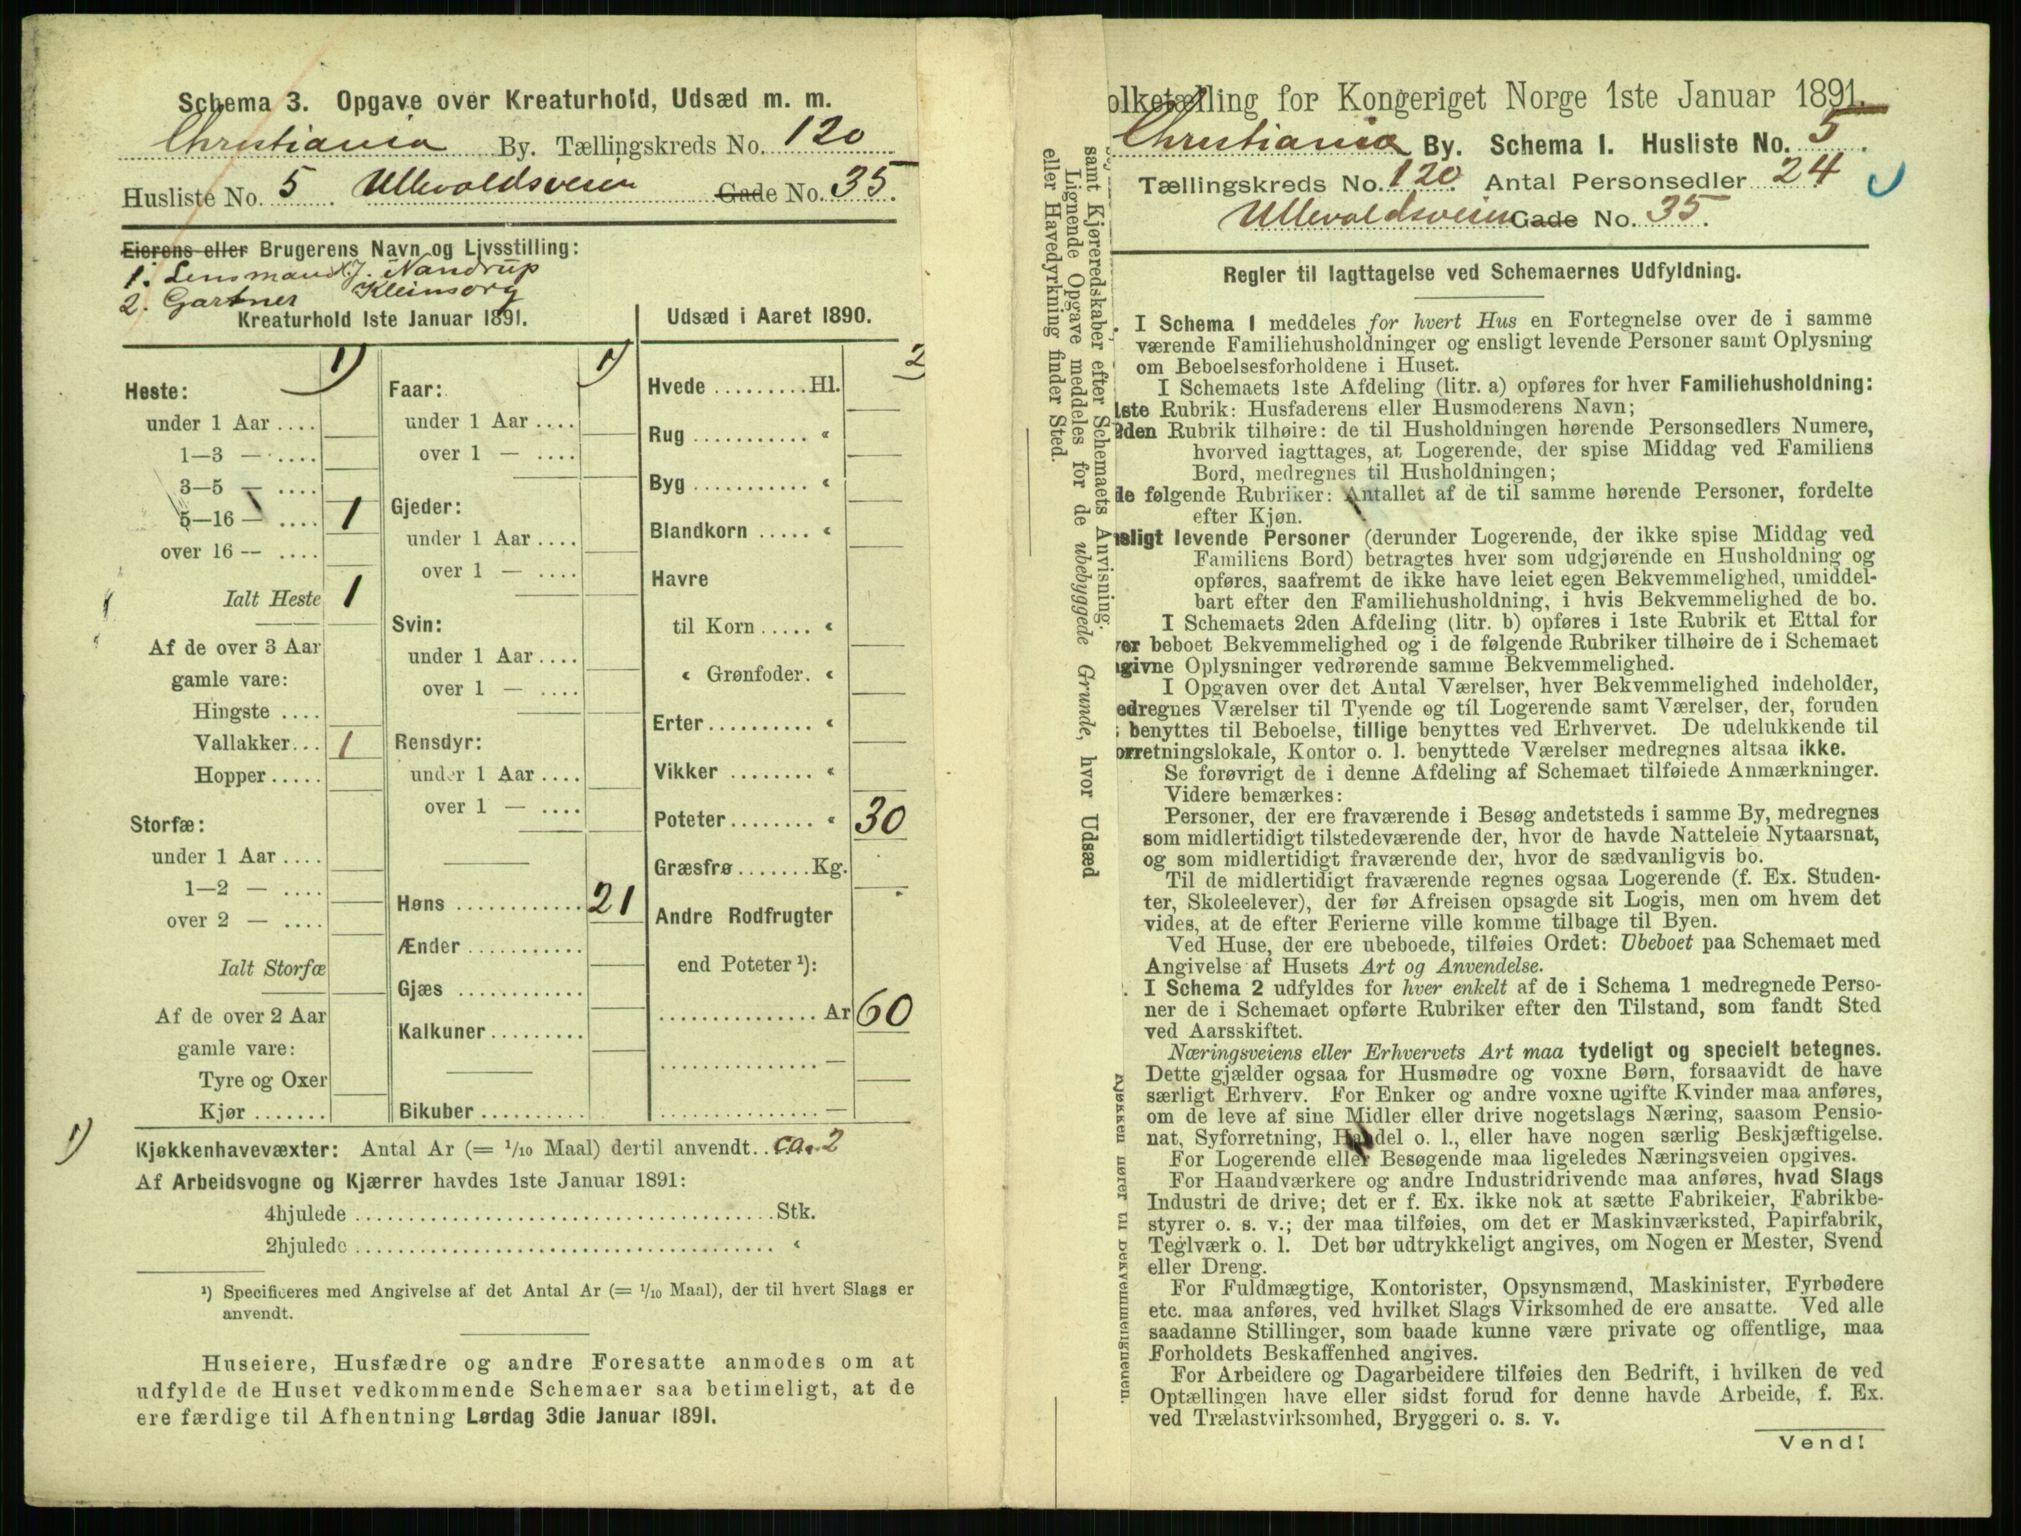 Schema 3. Opgave over Kreaturhold, Udsæd m. m.
Christiania By. Tællingskreds No. 120
Husliste No. 5 Ullevoldsveien Gade No. 35.
Eierens eller Brugerens Navn og Livsstilling:
1. Lensmand J. Nandrup
2. Gartner Kleinsorg
Kreaturhold 1ste Januar 1891.
1)
Heste:
under 1 Aar ....
1—3 — ....
3—5 — ....
5—16 — .... 1
over 16 — ....
Ialt Heste 1
Af de over 3 Aar
gamle vare:
Hingste ....
Vallakker... 1
Hopper .....
Storfæ:
under 1 Aar ....
1—2 — ....
over 2 — ....
Ialt Storfæ
Af de over 2 Aar
gamle vare:
Tyre og Oxer
Kjør .......
1)
Faar:
under 1 Aar ....
over 1 — ....
Gjeder:
under 1 Aar ....
over 1 — ....
Svin:
under 1 Aar ....
over 1 — ....
Rensdyr:
under 1 Aar ....
over 1 — ....
Høns ............ 21
Ænder ...........
Gjæs ............
Kalkuner.........
Bikuber ..........
Udsæd i Aaret 1890.
2
Hvede ......... Hl.
Rug ........... «
Byg ........... «
Blandkorn ..... «
Havre
til Korn ..... «
« Grønfoder. «
Erter .......... «
Vikker ........ «
Poteter ........ « 30
Græsfrø ....... Kg.
Andre Rodfrugter
end Poteter ¹):
............... Ar 60
............... —
............... —
1) Kjøkkenhavevæxter: Antal Ar (= 1/10 Maal) dertil anvendt.. ca. 2
Af Arbeidsvogne og Kjærrer havdes 1ste Januar 1891:
4hjulede ........................................ Stk.
2hjulede ........................................ «
¹) Specificeres med Angivelse af det Antal Ar (= 1/10 Maal), der til hvert Slags er
anvendt.
Huseiere, Husfædre og andre Foresatte anmodes om at
udfylde de Huset vedkommende Schemaer saa betimeligt, at de
ere færdige til Afhentning Lørdag 3die Januar 1891.
samt Kjøreredskaber efter Schemaets Anvisning.
Lignende Opgave meddeles for de ubebyggede Grunde, hvor Udsæd
eller Havedyrkning finder Sted.
Kjøkken hører til Bekvemmeligheden.
olketælling for Kongeriget Norge 1ste Januar 1891.
Christiania By. Schema I. Husliste No. 5.
Tællingskreds No. 120. Antal Personsedler 24
Ullevoldsveien Gade No. 35.
Regler til Iagttagelse ved Schemaernes Udfyldning.
. I Schema 1 meddeles for hvert Hus en Fortegnelse over de i samme
værende Familiehusholdninger og ensligt levende Personer samt Oplysning
om Beboelsesforholdene i Huset.
I Schemaets 1ste Afdeling (litr. a) opføres for hver Familiehusholdning:
1ste Rubrik: Husfaderens eller Husmoderens Navn;
2den Rubrik tilhøire: de til Husholdningen hørende Personsedlers Numere,
hvorved iagttages, at Logerende, der spise Middag ved Familiens
Bord, medregnes til Husholdningen;
de følgende Rubriker: Antallet af de til samme hørende Personer, fordelte
efter Kjøn.
nsligt levende Personer (derunder Logerende, der ikke spise Middag ved
Familiens Bord) betragtes hver som udgjørende en Husholdning og
opføres, saafremt de ikke have leiet egen Bekvemmelighed, umiddel-
bart efter den Familiehusholdning, i hvis Bekvemmelighed de bo.
I Schemaets 2den Afdeling (litr. b) opføres i 1ste Rubrik et Ettal for
ver beboet Bekvemmelighed og i de følgende Rubriker tilhøire de i Schemaet
ngivne Oplysninger vedrørende samme Bekvemmelighed.
I Opgaven over det Antal Værelser, hver Bekvemmelighed indeholder,
edregnes Værelser til Tyende og til Logerende samt Værelser, der, foruden
benyttes til Beboelse, tillige benyttes ved Erhvervet. De udelukkende til
orretningslokale, Kontor o. l. benyttede Værelser medregnes altsaa ikke.
Se forøvrigt de i denne Afdeling af Schemaet tilføiede Anmærkninger.
Videre bemærkes:
Personer, der ere fraværende i Besøg andetsteds i samme By, medregnes
som midlertidigt tilstedeværende der, hvor de havde Natteleie Nytaarsnat,
og som midlertidigt fraværende der, hvor de sædvanligvis bo.
Til de midlertidigt fraværende regnes ogsaa Logerende (f. Ex. Studen-
ter, Skoleelever), der før Afreisen opsagde sit Logis, men om hvem det
vides, at de efter Ferierne ville komme tilbage til Byen.
Ved Huse, der ere ubeboede, tilføies Ordet: Ubeboet paa Schemaet med
Angivelse af Husets Art og Anvendelse.
. I Schema 2 udfyldes for hver enkelt af de i Schema 1 medregnede Perso-
ner de i Schemaet opførte Rubriker efter den Tilstand, som fandt Sted
ved Aarsskiftet.
Næringsveiens eller Erhvervets Art maa tydeligt og specielt betegnes.
Dette gjælder ogsaa for Husmødre og voxne Børn, forsaavidt de have
særligt Erhverv. For Enker og andre voxne ugifte Kvinder maa anføres,
om de leve af sine Midler eller drive nogetslags Næring, saasom Pensio-
nat, Syforretning, Handel o. l., eller have nogen særlig Beskjæftigelse.
For Logerende eller Besøgende maa ligeledes Næringsveien opgives.
For Haandværkere og andre Industridrivende maa anføres, hvad Slags
Industri de drive; det er f. Ex. ikke nok at sætte Fabrikeier, Fabrikbe-
styrer o. s. v.; der maa tilføies, om det er Maskinværksted, Papirfabrik,
Teglværk o. l. Det bør udtrykkeligt angives, om Nogen er Mester, Svend
eller Dreng.
For Fuldmægtige, Kontorister, Opsynsmænd, Maskinister, Fyrbødere
etc. maa anføres, ved hvilket Slags Virksomhed de ere ansatte. Ved alle
saadanne Stillinger, som baade kunne være private og offentlige, maa
Forholdets Beskaffenhed angives.
For Arbeidere og Dagarbeidere tilføies den Bedrift, i hvilken de ved
Optællingen have eller sidst forud for denne havde Arbeide, f. Ex.
ved Trælastvirksomhed, Bryggeri o. s. v.
Vend!